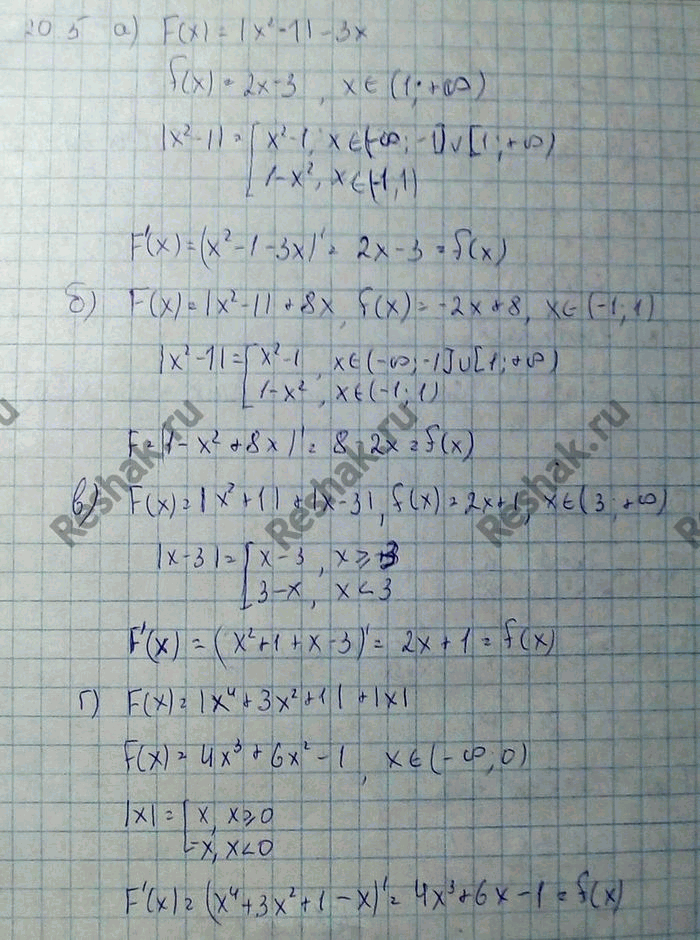 20.5 а) F(x) = |x²-1| - 3x
f(x) = 2x-3 , x∈(1;+∞)
|x²-1| = [ x²-1, x∈(-∞;-1]∪[1;+∞)
1-x², x∈(-1;1)
F'(x) = (x²-1-3x)' = 2x-3 = f(x)
б) F(x) = |x²-1| + 8x, f(x) = -2x+8, x∈(-1;1)
|x²-1| = [ x²-1 , x∈(-∞;-1]∪[1;+∞)
1-x² , x∈(-1;1)
F = (1-x²+8x)' = 8-2x = f(x)
в) F(x) = |x²+1| + |x-3|, f(x) = 2x+1, x∈(3;+∞)
|x-3| = [ x-3 , x⩾3
3-x , x<3
F'(x) = (x²+1+x-3)' = 2x+1 = f(x)
г) F(x) = |x⁴+3x²+1| + |x|
f(x) = 4x³+6x²-1 , x∈(-∞;0)
|x| = [ x, x⩾0
-x, x<0
F'(x) = (x⁴+3x²+1-x)' = 4x³+6x-1 = f(x)
Reshak.ru
Reshak.ru